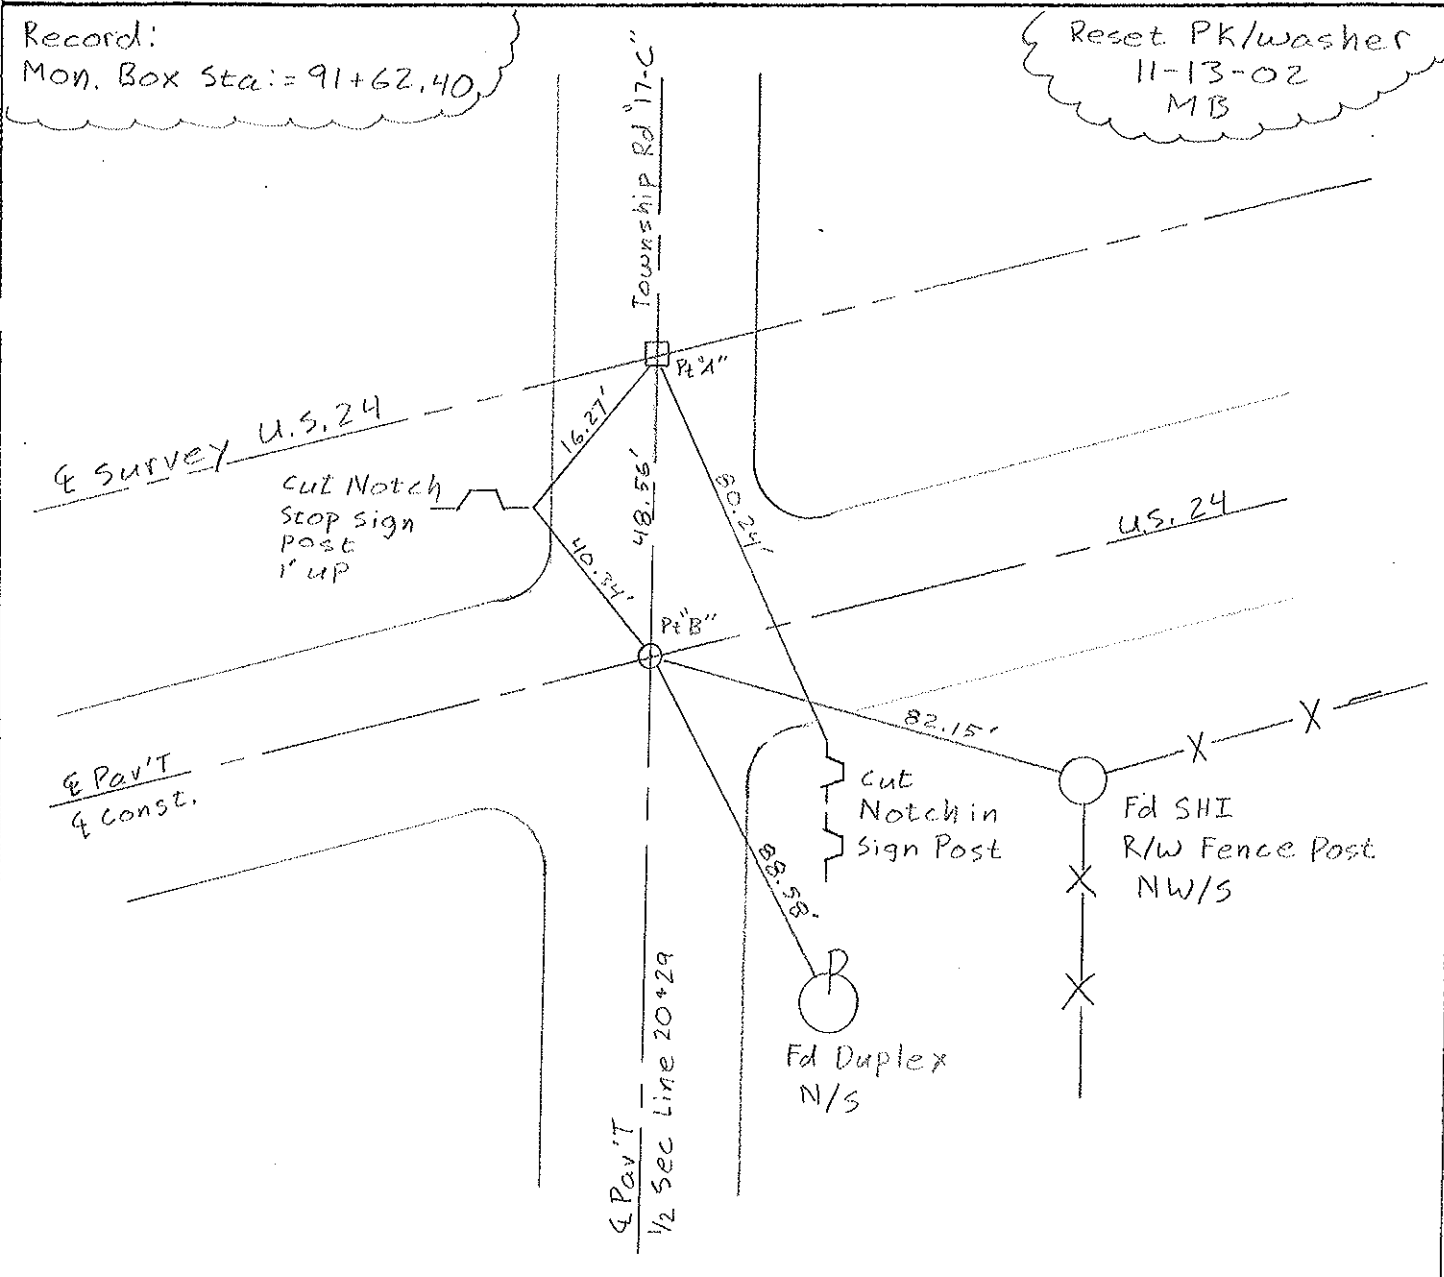 Record:
Mon. Box Sta:= 91+62.40
Reset PK/washer
11-13-02
MB
Township Rd "17-C"
Pt "A"
℄ Survey U.S. 24
16.27'
48.56'
80.24'
Cut Notch
Stop sign
Post
1' up
40.34'
U.S. 24
Pt "B"
82.15'
℄ Pav'T
℄ Const.
Cut
Notch in
Sign Post
Fd SHI
R/W Fence Post
NW/S
88.58'
D
Fd Duplex
N/S
℄ Pav'T
1/2 Sec Line 20+29